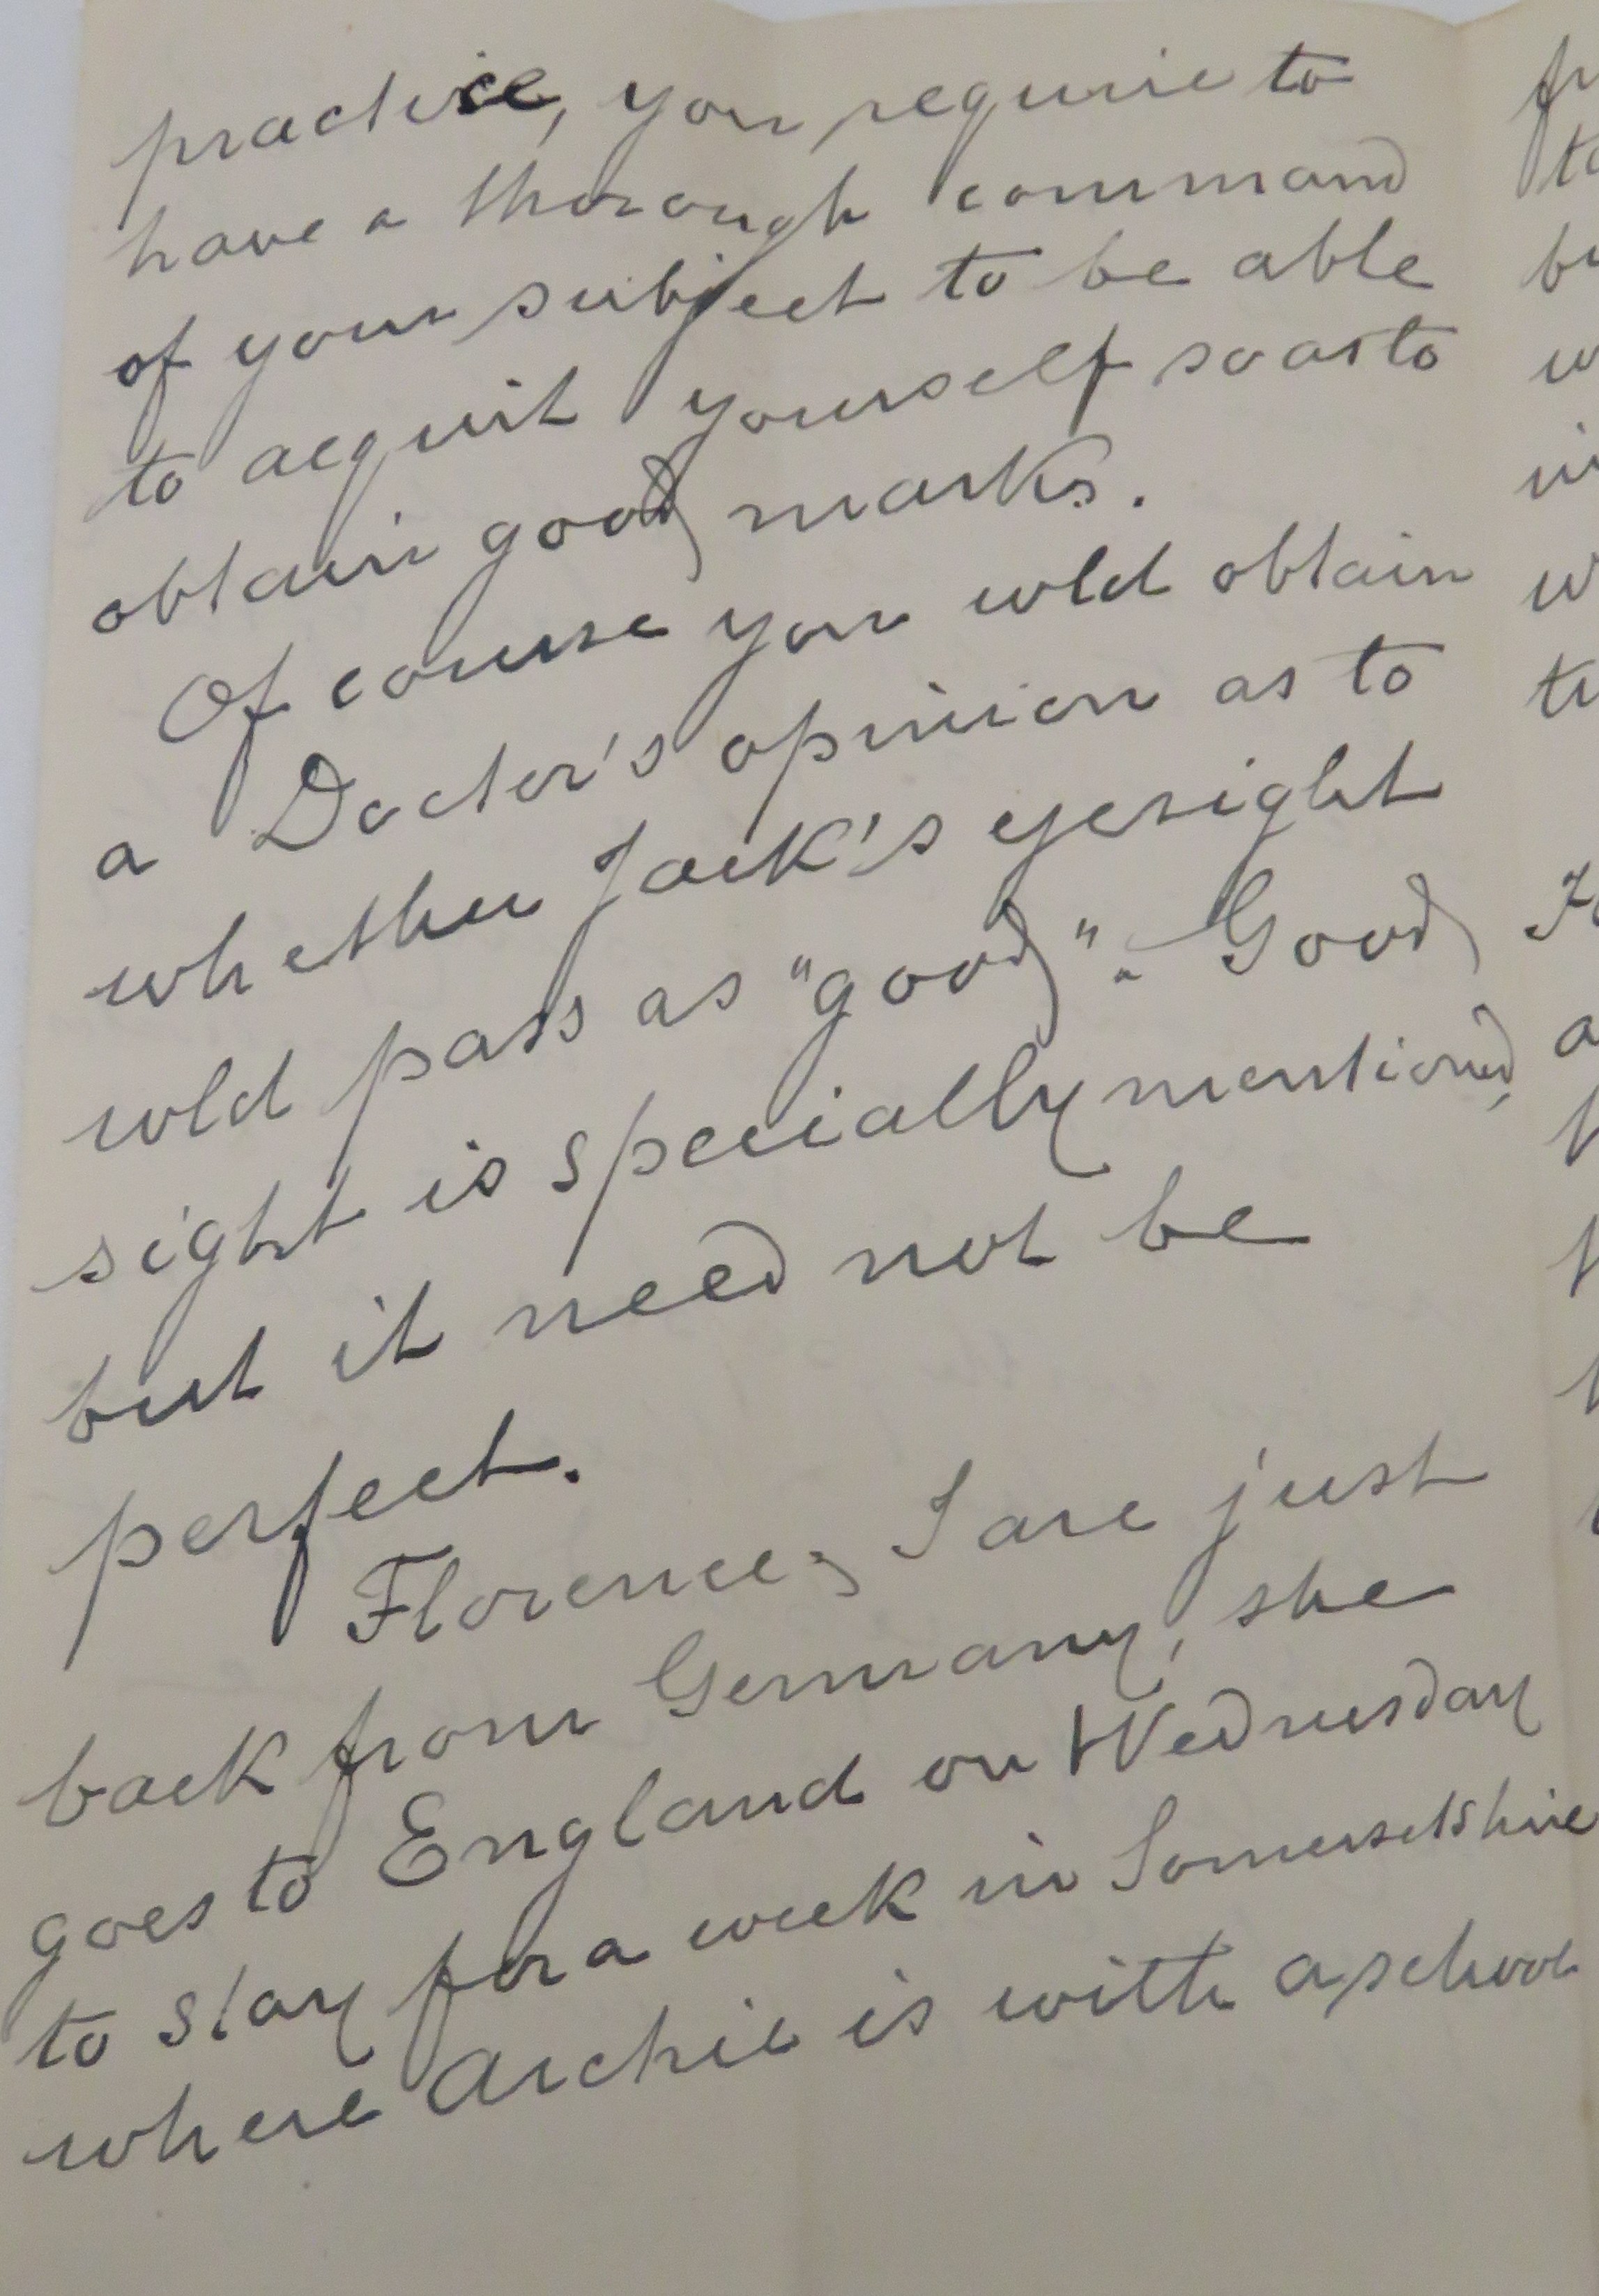 practice, you require to
have a thorough command
of your subject to be able
to acquit yourself so as to
obtain good marks.
Of course you wld obtain
a Doctor's opinion as to
whether Jack's eyesight
wld pass as "good". Good
sight is specially mentioned,
but it need not be
perfect.
Florence & I are just
back from Germany, she
goes to England on Wednesday
to stay for a week in Somersetshire
where Archie is with a school